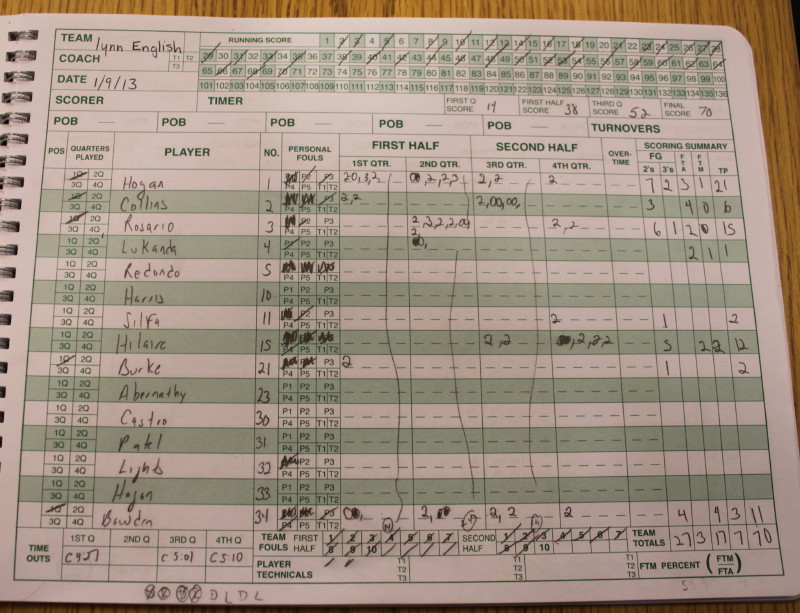 TEAM Lynn English RUNNING SCORE 1 2 3 4 5 6 7 8 9 10 11 12 13 14 15 16 17 18 19 20 21 22 23 24 25 26 27 28
COACH T1 T2 T3 29 30 31 32 33 34 35 36 37 38 39 40 41 42 43 44 45 46 47 48 49 50 51 52 53 54 55 56 57 58 59 60 61 62 63 64
DATE 1/9/13 65 66 67 68 69 70 71 72 73 74 75 76 77 78 79 80 81 82 83 84 85 86 87 88 89 90 91 92 93 94 95 96 97 98 99 100
101 102 103 104 105 106 107 108 109 110 111 112 113 114 115 116 117 118 119 120 121 122 123 124 125 126 127 128 129 130 131 132 133 134 135 136
SCORER TIMER FIRST Q SCORE 14 FIRST HALF SCORE 38 THIRD Q SCORE 52 FINAL SCORE 70
POB POB POB POB POB TURNOVERS
POS QUARTERS PLAYED PLAYER NO. PERSONAL FOULS FIRST HALF SECOND HALF OVER-TIME SCORING SUMMARY
1ST QTR. 2ND QTR. 3RD QTR. 4TH QTR. FG 2's 3's FTA FTM TP
1Q 2Q 3Q 4Q Hogan 1 P4 P5 T1 T2 2,2 2 7 2 3 1 21
1Q 2Q 3Q 4Q Collins 2 P4 P5 T1 T2 2,2 2,00,00, 3 4 0 6
1Q 2Q 3Q 4Q Rosario 3 P2 P3 P4 P5 T1 T2 2,2 6 1 2 0 15
1Q 2Q 3Q 4Q Lukanda 4 P1 P2 P3 P4 P5 T1 T2 2 1 1
1Q 2Q 3Q 4Q Redondo 5 P4 P5 T1 T2
1Q 2Q 3Q 4Q Harris 10 P1 P2 P3 P4 P5 T1 T2
1Q 2Q 3Q 4Q Silfa 11 P2 P3 P4 P5 T1 T2 2 1 2
1Q 2Q 3Q 4Q Hilaire 15 P4 P5 T1 T2 2,2 2,2,2 5 2 2 12
1Q 2Q 3Q 4Q Burke 21 P3 P4 P5 T1 T2 2 1 2
1Q 2Q 3Q 4Q Abernathy 23 P1 P2 P3 P4 P5 T1 T2
1Q 2Q 3Q 4Q Castro 30 P1 P2 P3 P4 P5 T1 T2
1Q 2Q 3Q 4Q Patel 31 P1 P2 P3 P4 P5 T1 T2
1Q 2Q 3Q 4Q Light 32 P2 P3 P4 P5 T1 T2
1Q 2Q 3Q 4Q Hogan 33 P1 P2 P3 P4 P5 T1 T2
1Q 2Q 3Q 4Q Bowden 34 P4 P5 T1 T2 2,2 2 4 4 3 11
TIME OUTS 1ST Q 2ND Q 3RD Q C 5:01 4TH Q C 5:10 TEAM FOULS FIRST HALF 1 2 3 4 5 6 7 8 9 10 SECOND HALF 1 2 3 4 5 6 7 8 9 10 TEAM TOTALS 27 3 17 7 70
PLAYER TECHNICALS T1 T2 T3 T1 T2 T3 FTM PERCENT (FTM/FTA)
D L D L